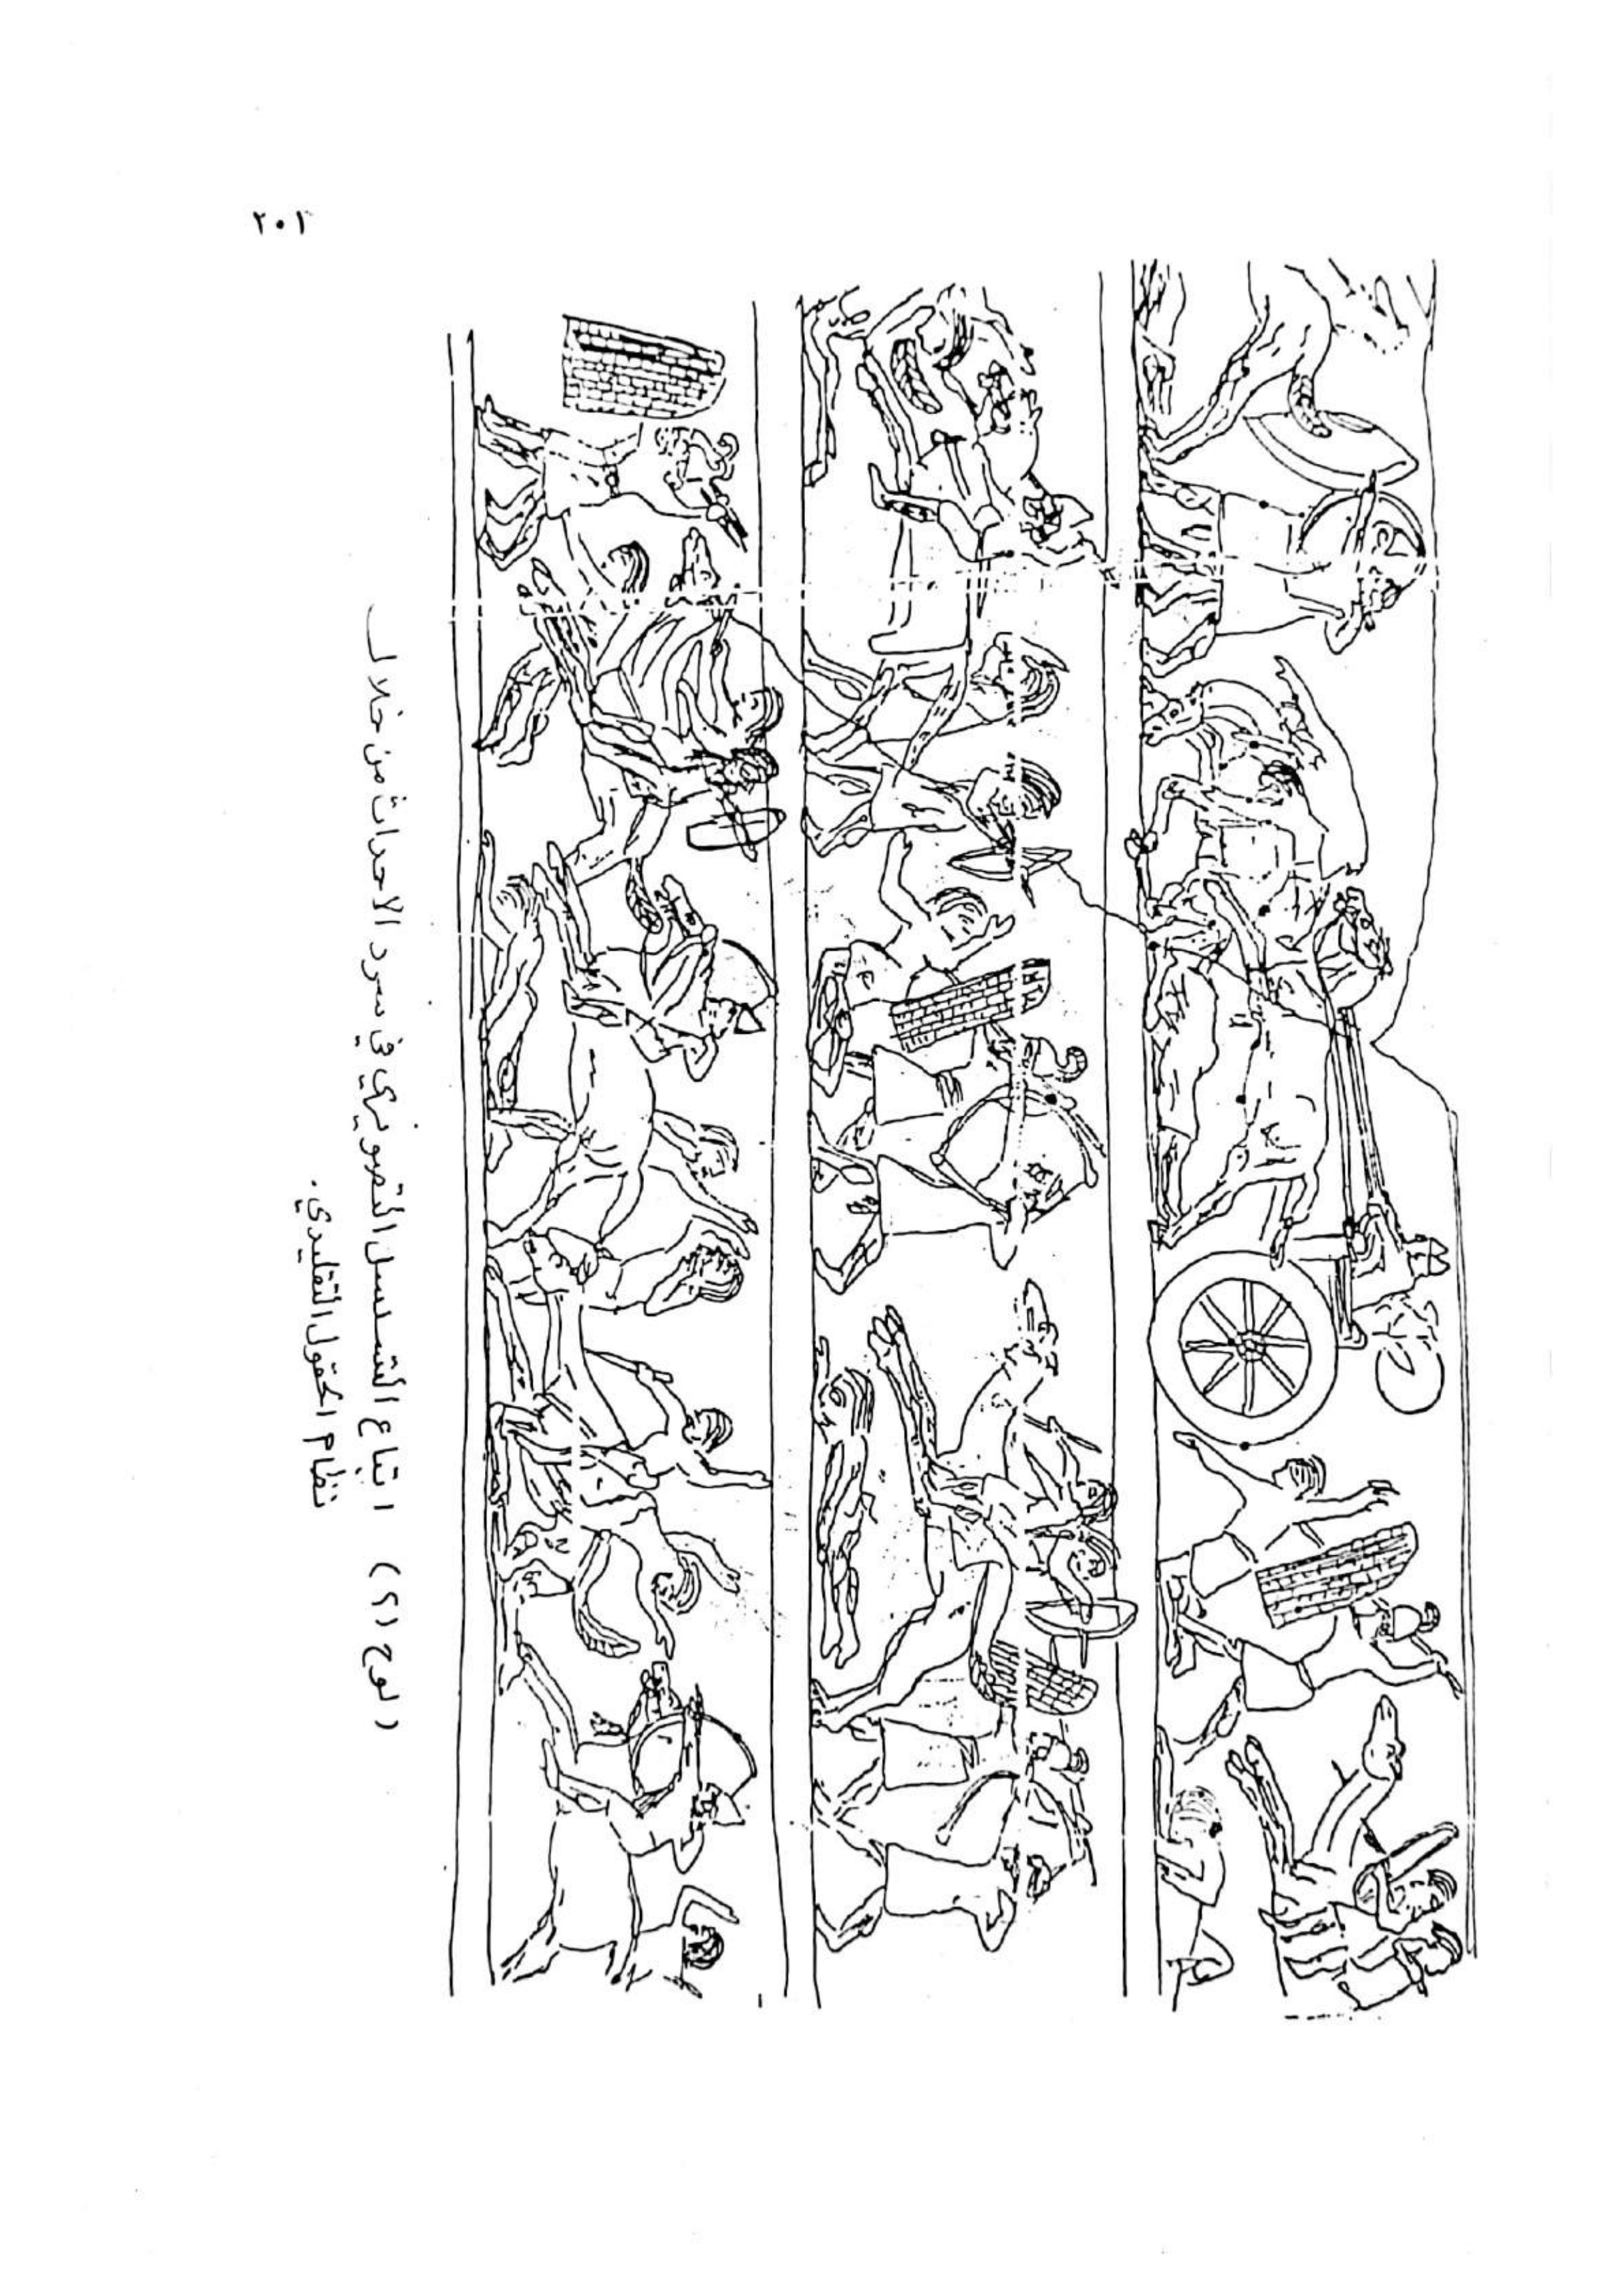 ٢٠٢
(لوح ٩) اتباع التسلسل التصويري في سرد الاحداث من خلال
نظام الحقول التقليدي.